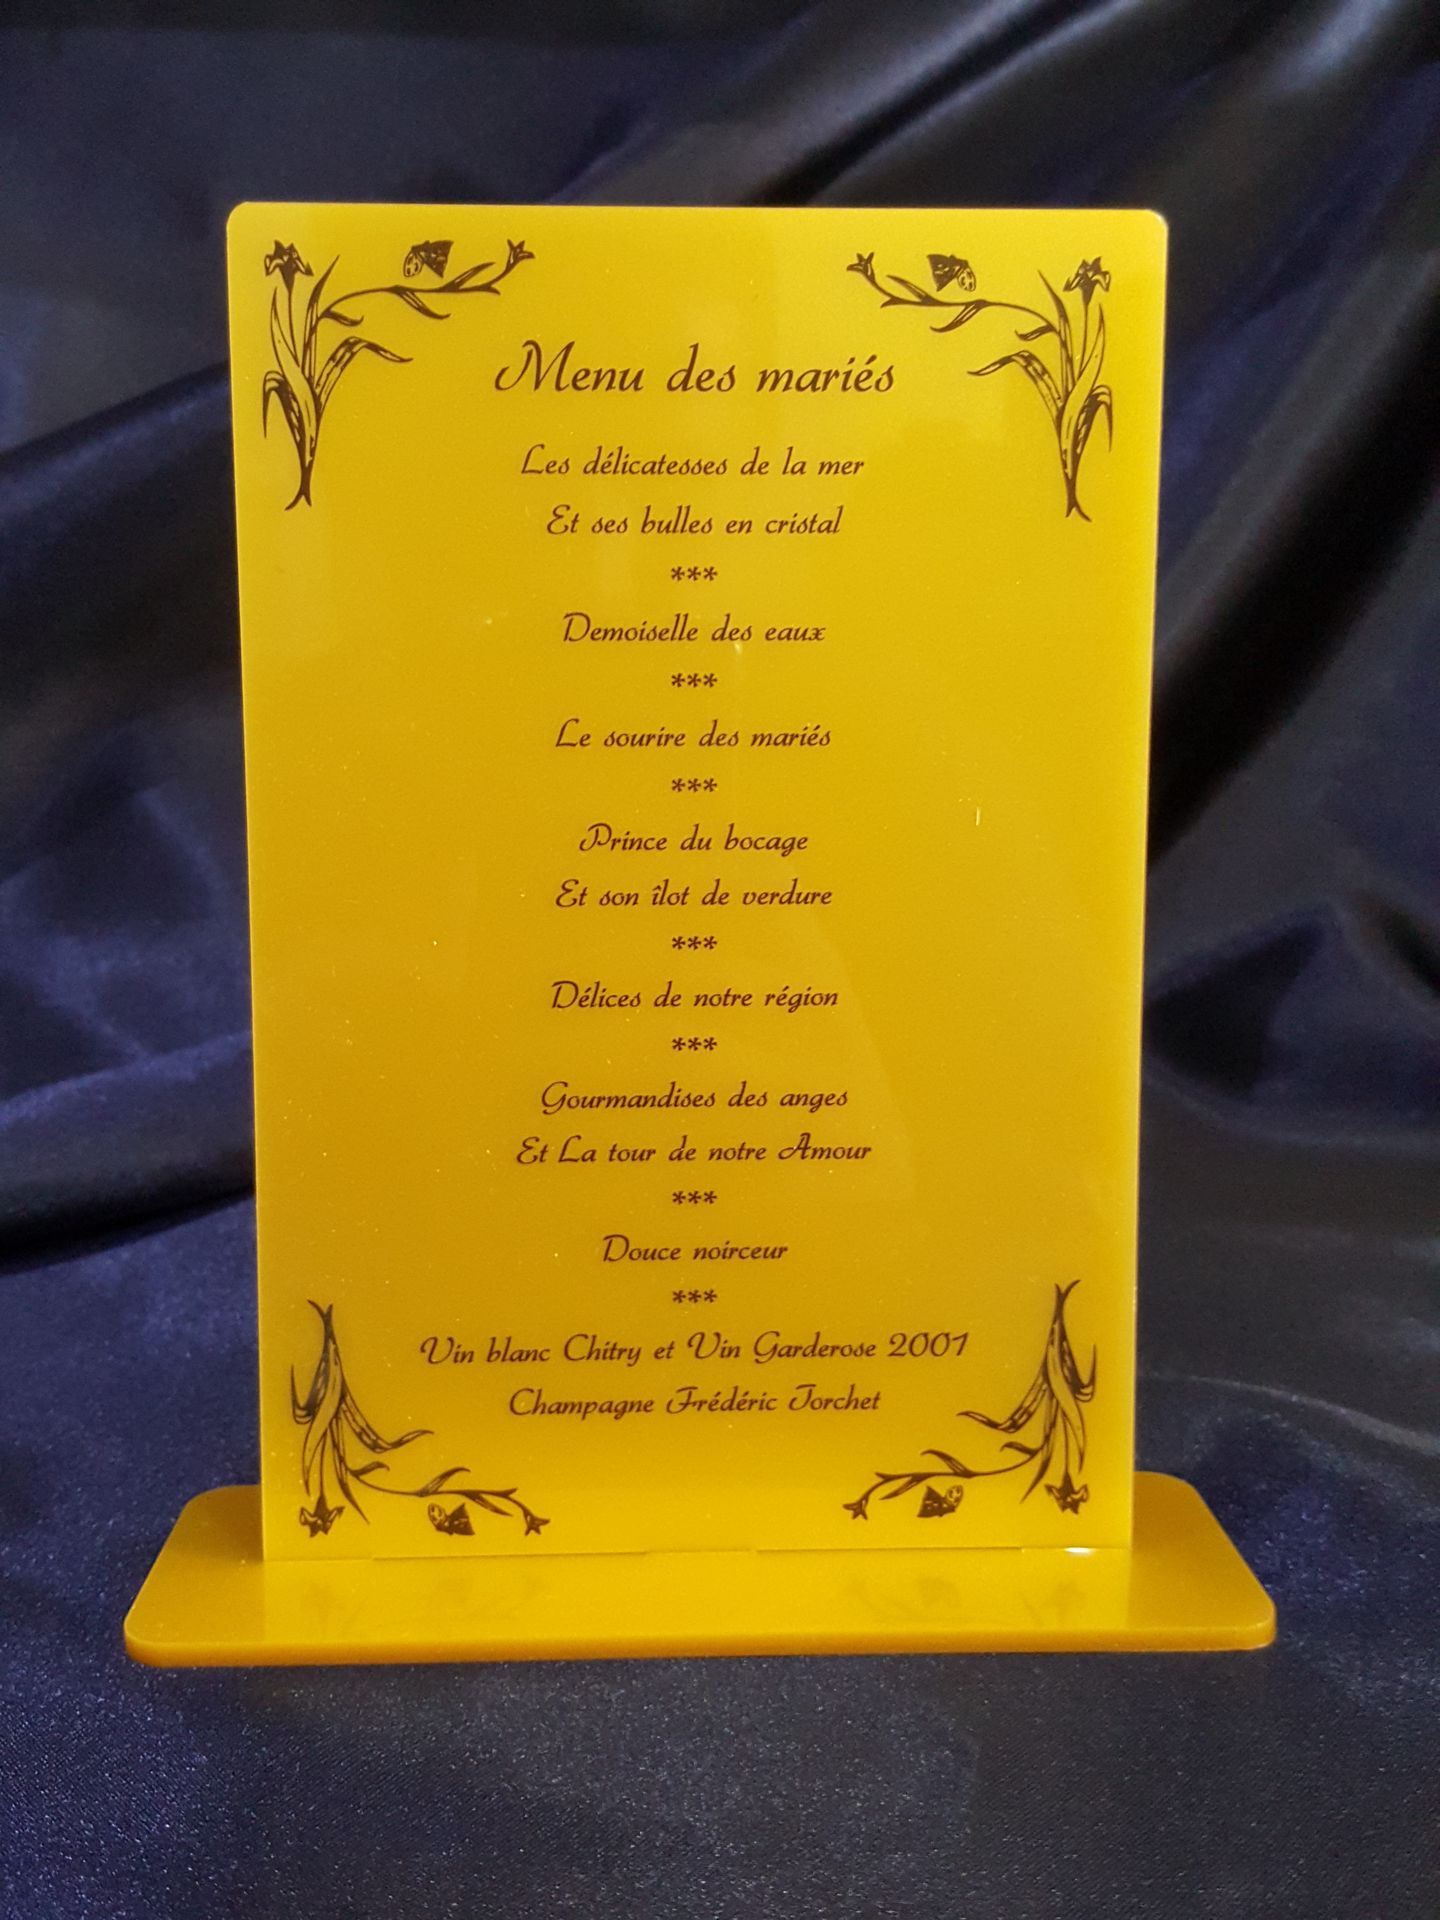 Menu des mariés
Les délicatesses de la mer
Et ses bulles en cristal
***
Demoiselle des eaux
***
Le sourire des mariés
***
Prince du bocage
Et son îlot de verdure
***
Délices de notre région
***
Gourmandises des anges
Et La tour de notre Amour
***
Douce noirceur
***
Vin blanc Chitry et Vin Garderose 2001
Champagne Frédéric Torchet